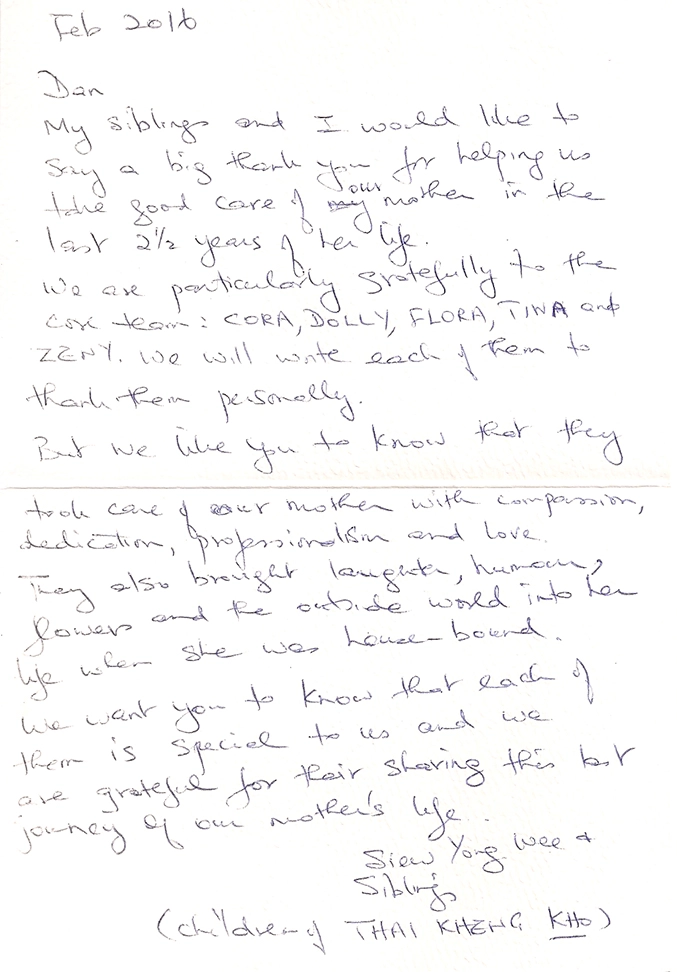 Feb 2016
Dan
My siblings and I would like to
say a big thank you for helping us
take good care of our mother in the
last 2½ years of her life.
We are particularly gratefully to the
core team: CORA, DOLLY, FLORA, TINA and
ZENY. We will write each of them to
thank them personally.
But we like you to know that they
took care of our mother with compassion,
dedication, professionalism and love.
They also brought laughter, humour,
flowers and the outside world into her
life when she was house-bound.
We want you to know that each of
them is special to us and we
are grateful for their sharing this last
journey of our mother's life.
Siew Yong Wee +
Siblings
(children of THAI KHENG KHO)